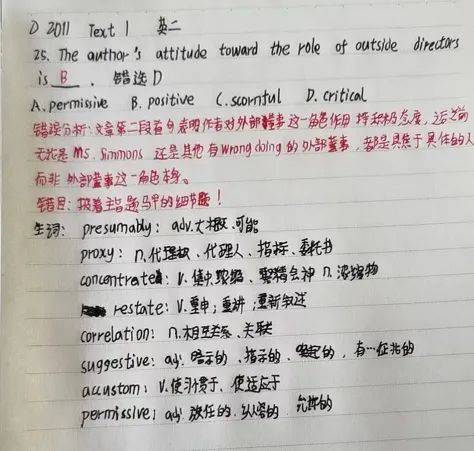 ① 2011 Text 1 英二
25. The author's attitude toward the role of outside directors
is B . 错选D
A. permissive B. positive C. scornful D. critical
错误分析:文章第二段首句表明作者对外部董事这一角色作用持积极态度,
无论是 Ms. Simmons 还是其他有 wrong doing 的外部董事,都是具焦于具体的人
而非外部董事这一角色本身。
错因:披着主旨题马甲的细节题!
生词: presumably: adv. 大概、可能
proxy: n. 代理权、代理人、指标、委托书
concentrate: v. 集中、聚精会神 n. 浓缩物
restate: v. 重申;重讲;重新叙述
correlation: n. 相互关系、关联
suggestive: adj. 暗示的、指示的、引起的,有…征兆的
accustom: v. 使习惯于、使适应于
permissive: adj. 放任的、纵容的 允许的